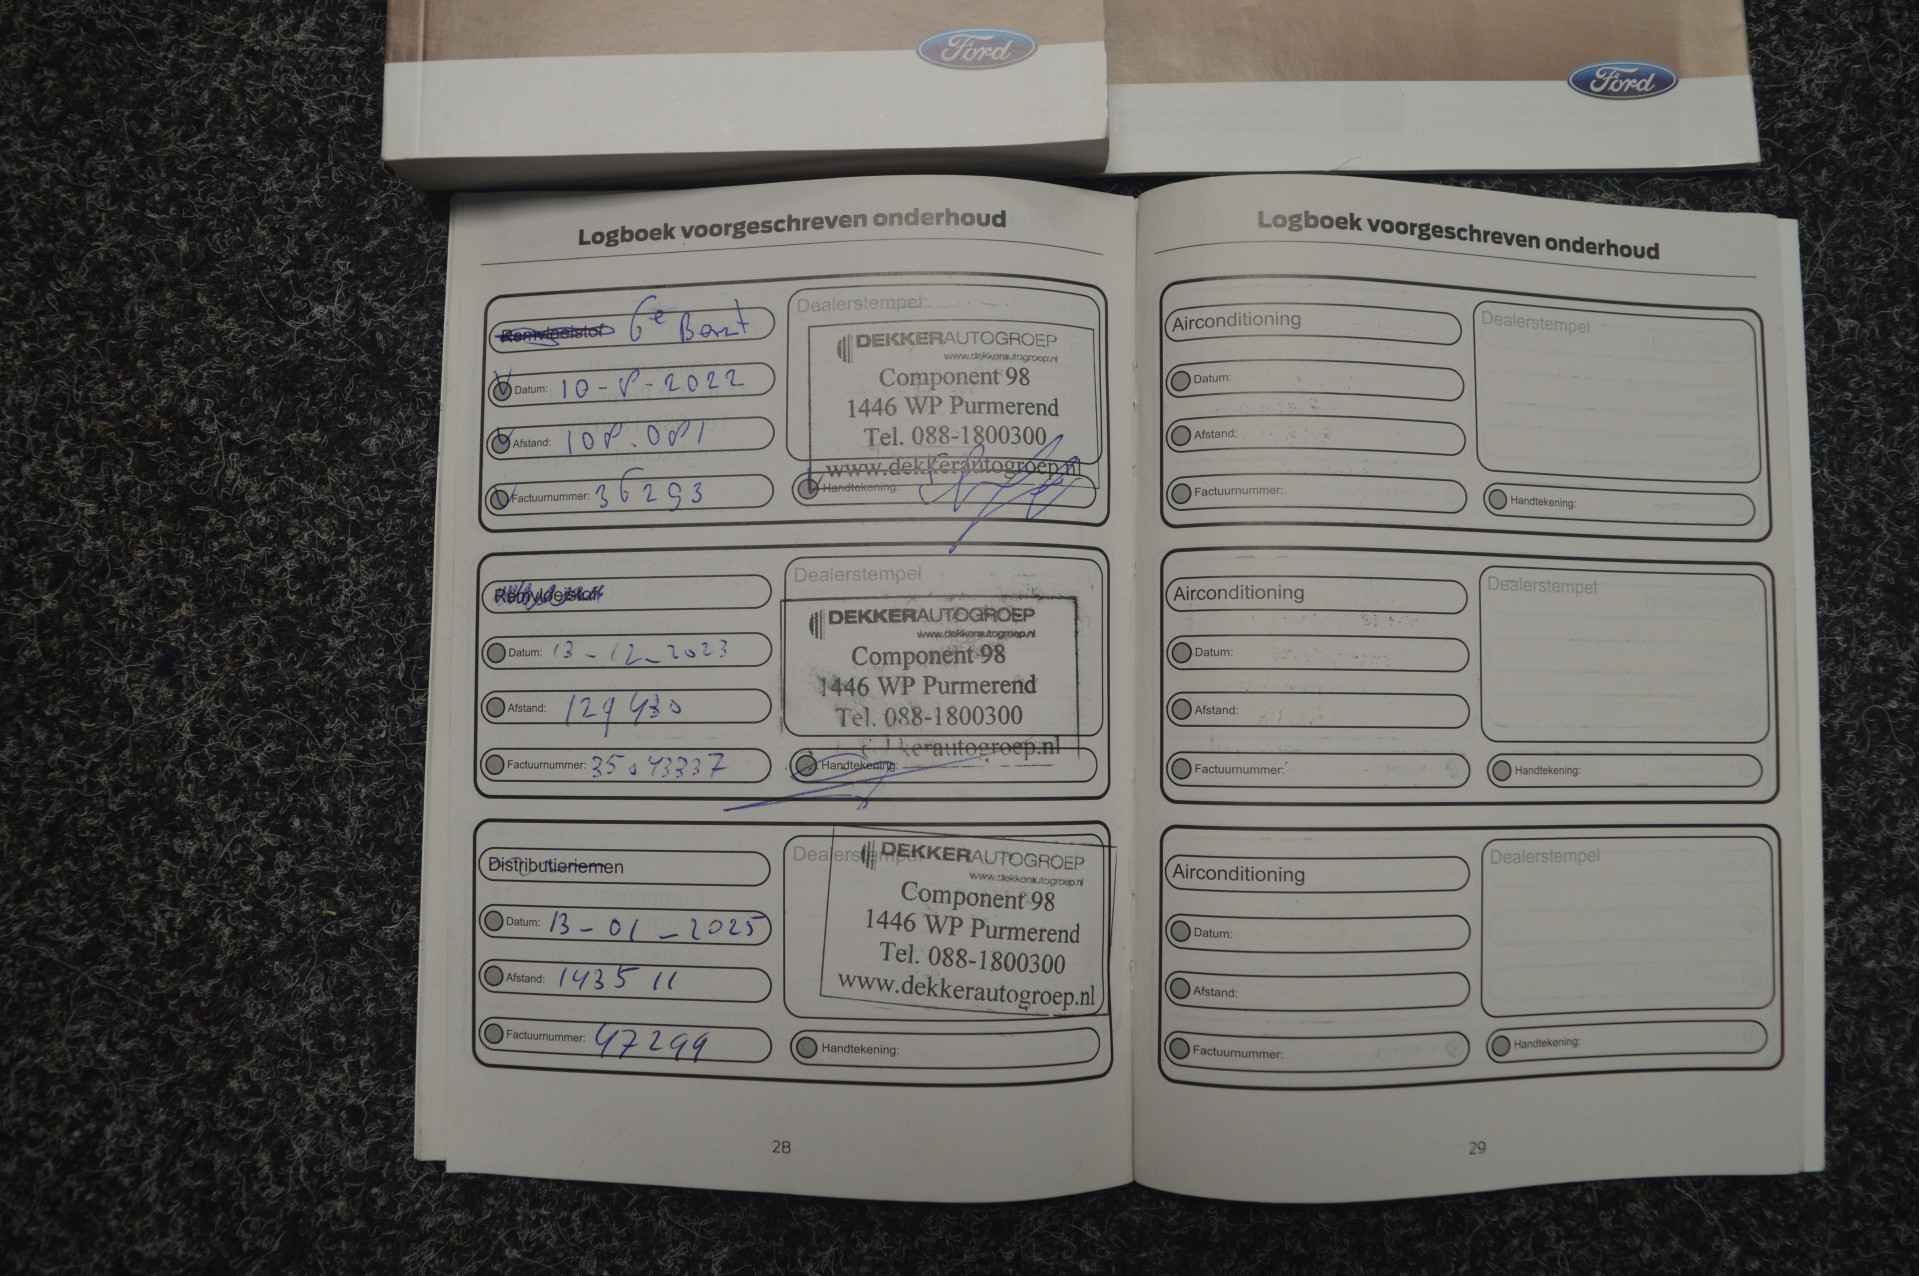 Ford
Ford
Logboek voorgeschreven onderhoud
Remvloeistof 6e Beurt
Datum: 10-8-2022
Afstand: 108.081
Factuurnummer: 36293
Dealerstempel
DEKKERAUTOGROEP
www.dekkerautogroep.nl
Component 98
1446 WP Purmerend
Tel. 088-1800300
www.dekkerautogroep.nl
Handtekening:
Remvloeistof
Datum: 13-12-2023
Afstand: 129430
Factuurnummer: 35043337
Dealerstempel
DEKKERAUTOGROEP
www.dekkerautogroep.nl
Component 98
1446 WP Purmerend
Tel. 088-1800300
kerautogroep.nl
Handtekening:
Distributieriemen
Datum: 13-01-2025
Afstand: 143511
Factuurnummer: 47299
Dealerstempel
DEKKERAUTOGROEP
www.dekkerautogroep.nl
Component 98
1446 WP Purmerend
Tel. 088-1800300
www.dekkerautogroep.nl
Handtekening:
28
Logboek voorgeschreven onderhoud
Airconditioning
Datum:
Afstand:
Factuurnummer:
Dealerstempel
Handtekening:
Airconditioning
Datum:
Afstand:
Factuurnummer:
Dealerstempel
Handtekening:
Airconditioning
Datum:
Afstand:
Factuurnummer:
Dealerstempel
Handtekening:
29